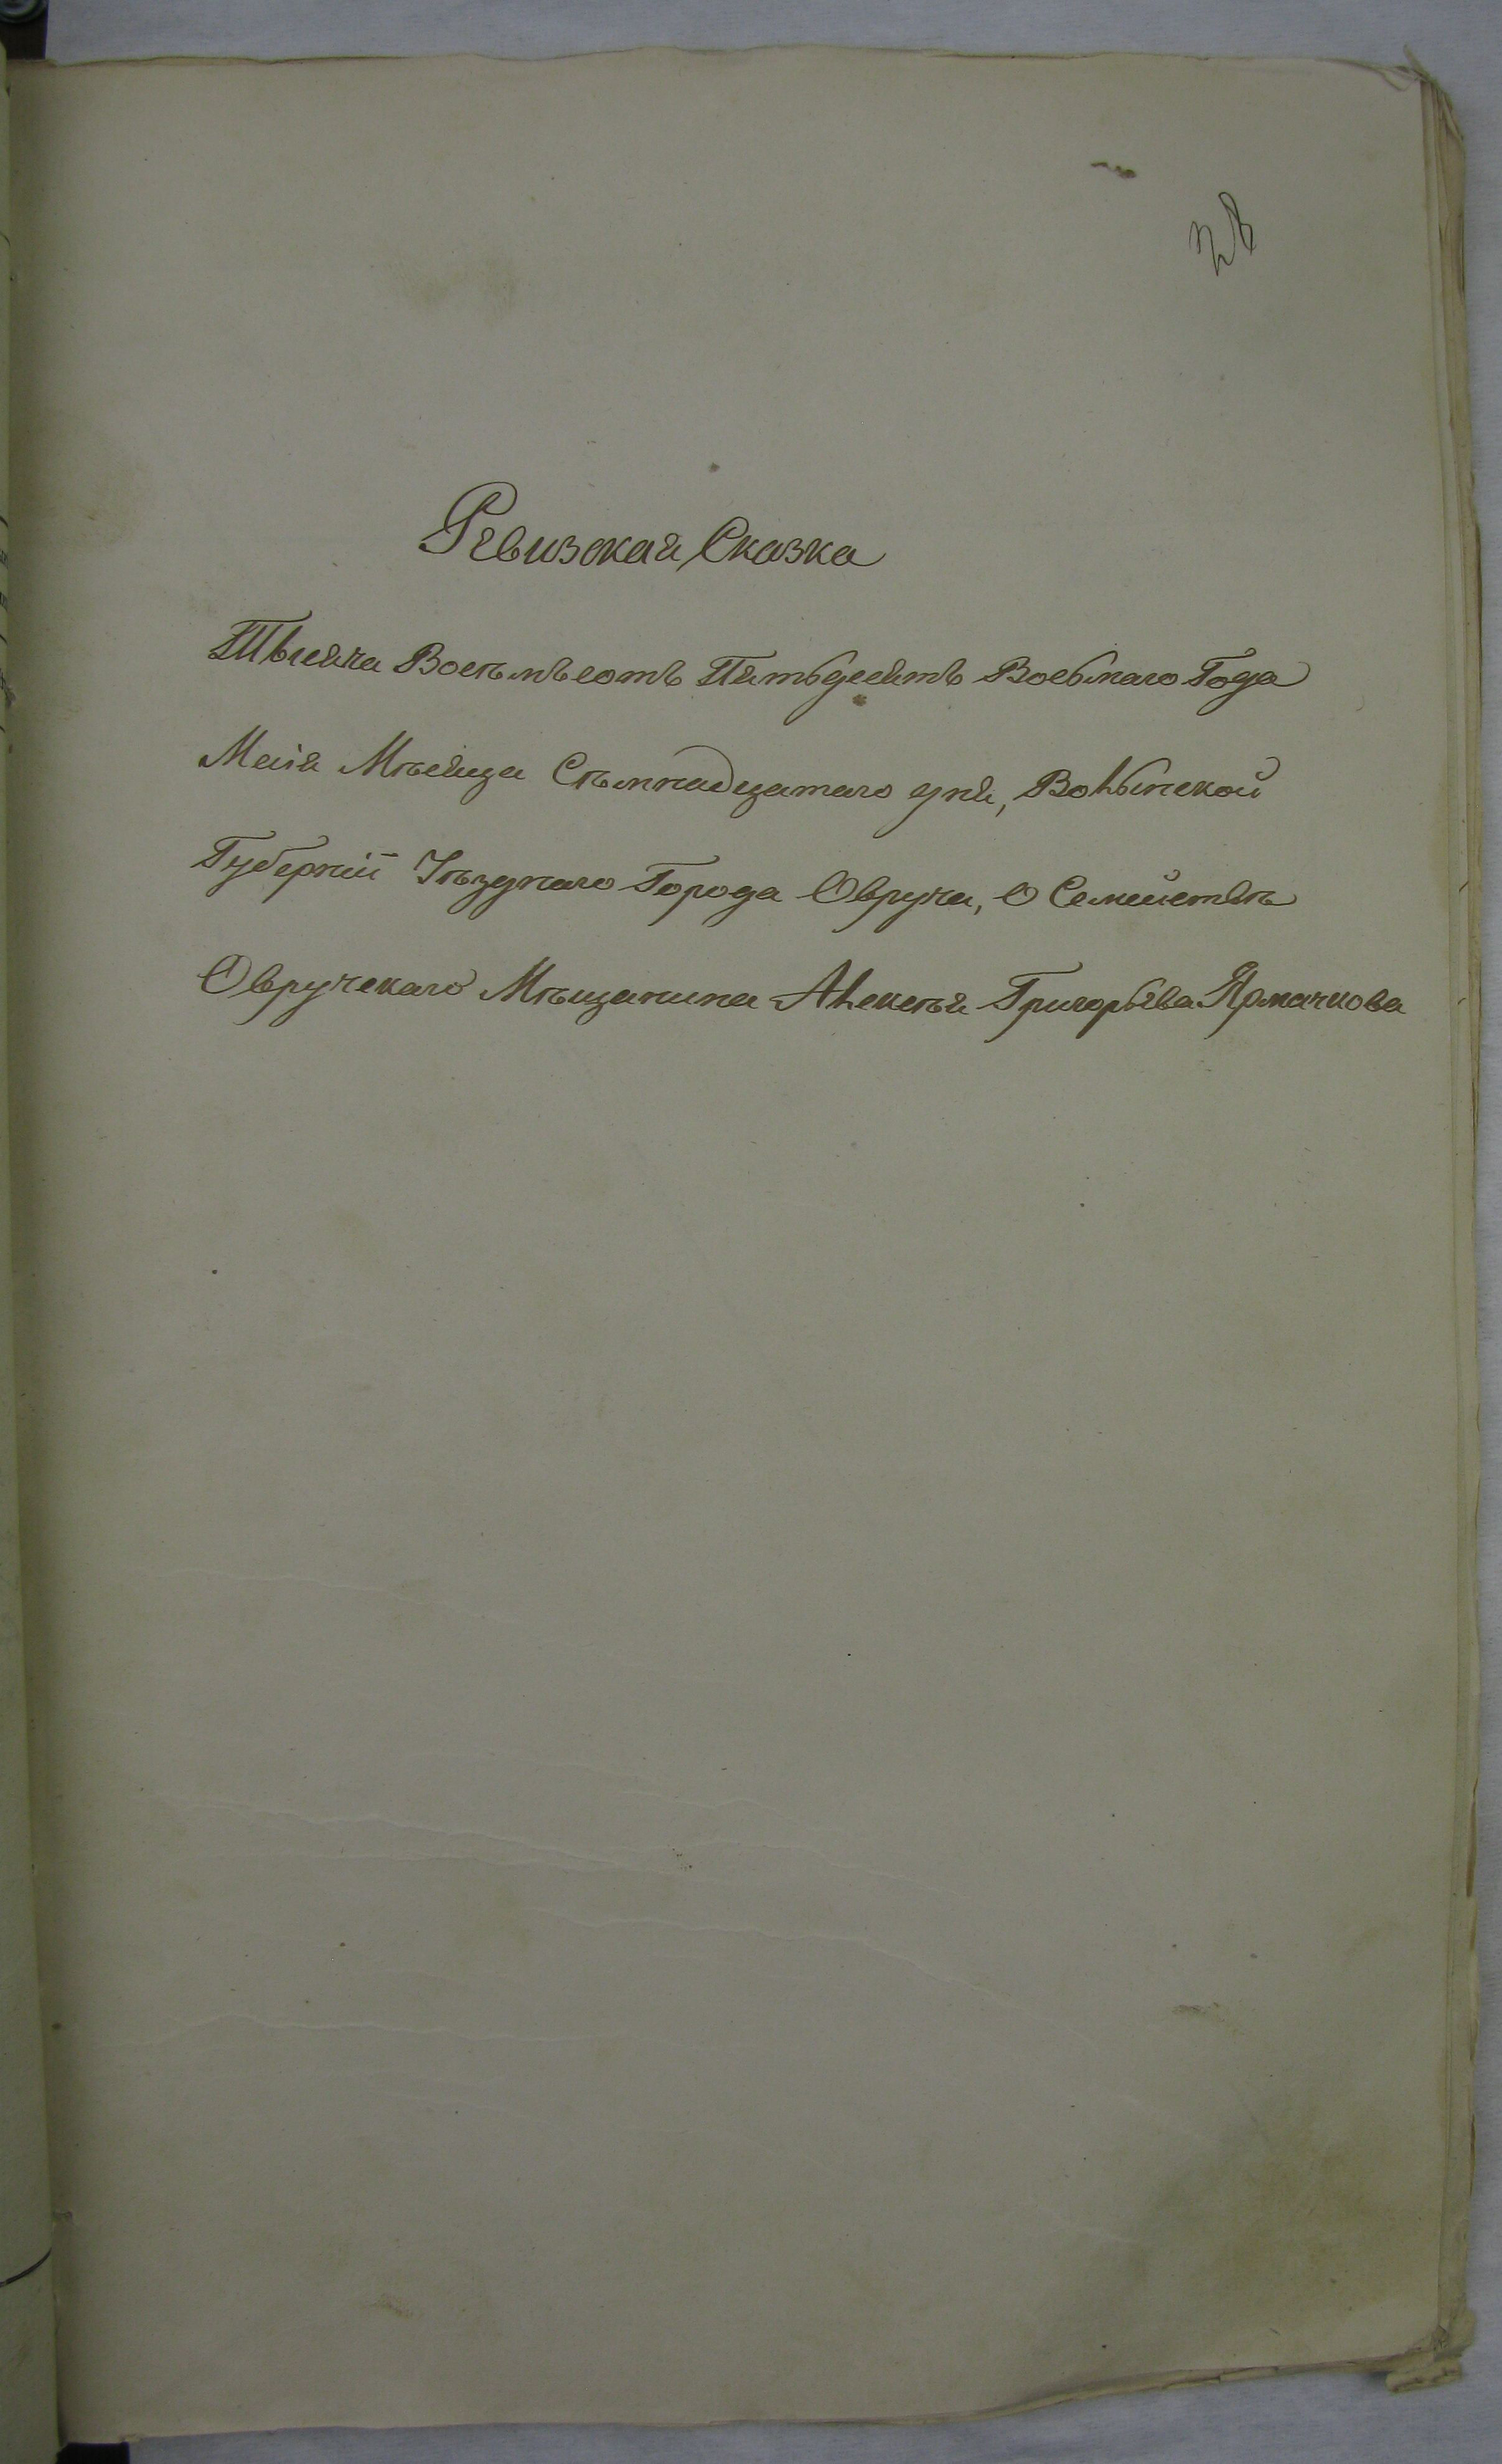 28
Ревизская Сказка
Тысяча Восѣмьсотъ Пятьдесятъ Восьмаго Года
Маія Мѣсяца Сѣмнадцатаго дня, Волынской
Губерніи Уѣзднаго Города Овруча, О Семействѣ
Овручскаго Мѣщанина Алексѣя Григорьева Ярмачкова